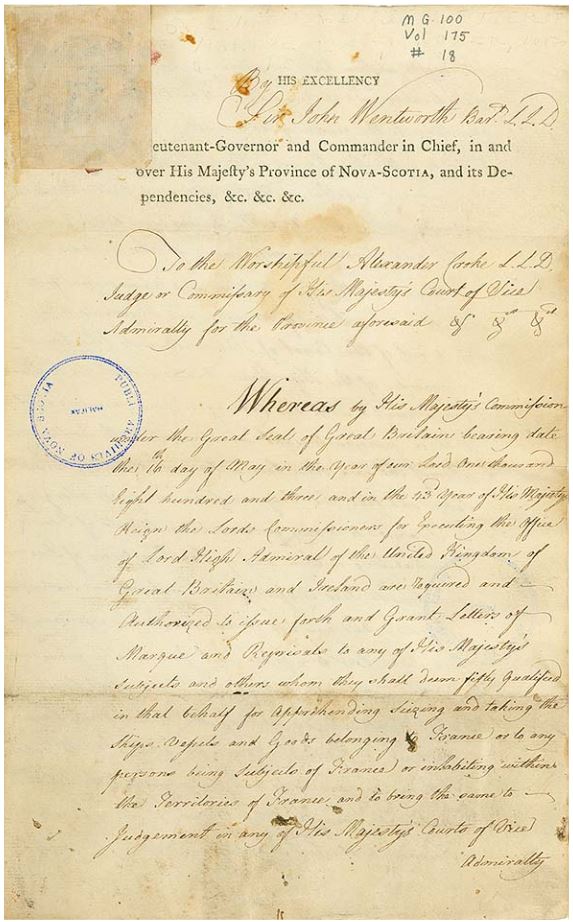 M G. 100
Vol 175
# 18
By HIS EXCELLENCY
Sir John Wentworth Bart. L.L.D.
Lieutenant-Governor and Commander in Chief, in and
over His Majesty's Province of NOVA-SCOTIA, and its De-
pendencies, &c. &c. &c.
To the Worshipful Alexander Croke L.L.D.
Judge or Commissary of His Majesty's Court of Vice
Admiralty for the Province aforesaid &c &c &c
PUBLIC ARCHIVES OF NOVA SCOTIA
HALIFAX
Whereas by His Majesty's Commission
under the Great Seal of Great Britain bearing date
the 16th day of May in the Year of our Lord One thousand
Eight hundred and three and in the 43d Year of His Majesty
Reign the Lords Commissioners for Executing the Office
of Lord High Admiral of the United Kingdom of
Great Britain and Ireland are required and
Authorized to issue forth and Grant Letters of
Marque and Reprisals to any of His Majesty's
Subjects and others whom they shall deem fitly qualified
in that behalf for Apprehending Seizing and taking the
Ships Vessels and Goods belonging to France or to any
persons being Subjects of France or inhabiting within
the Territories of France and to bring the same to
Judgement in any of His Majesty's Courts of Vice
Admiralty